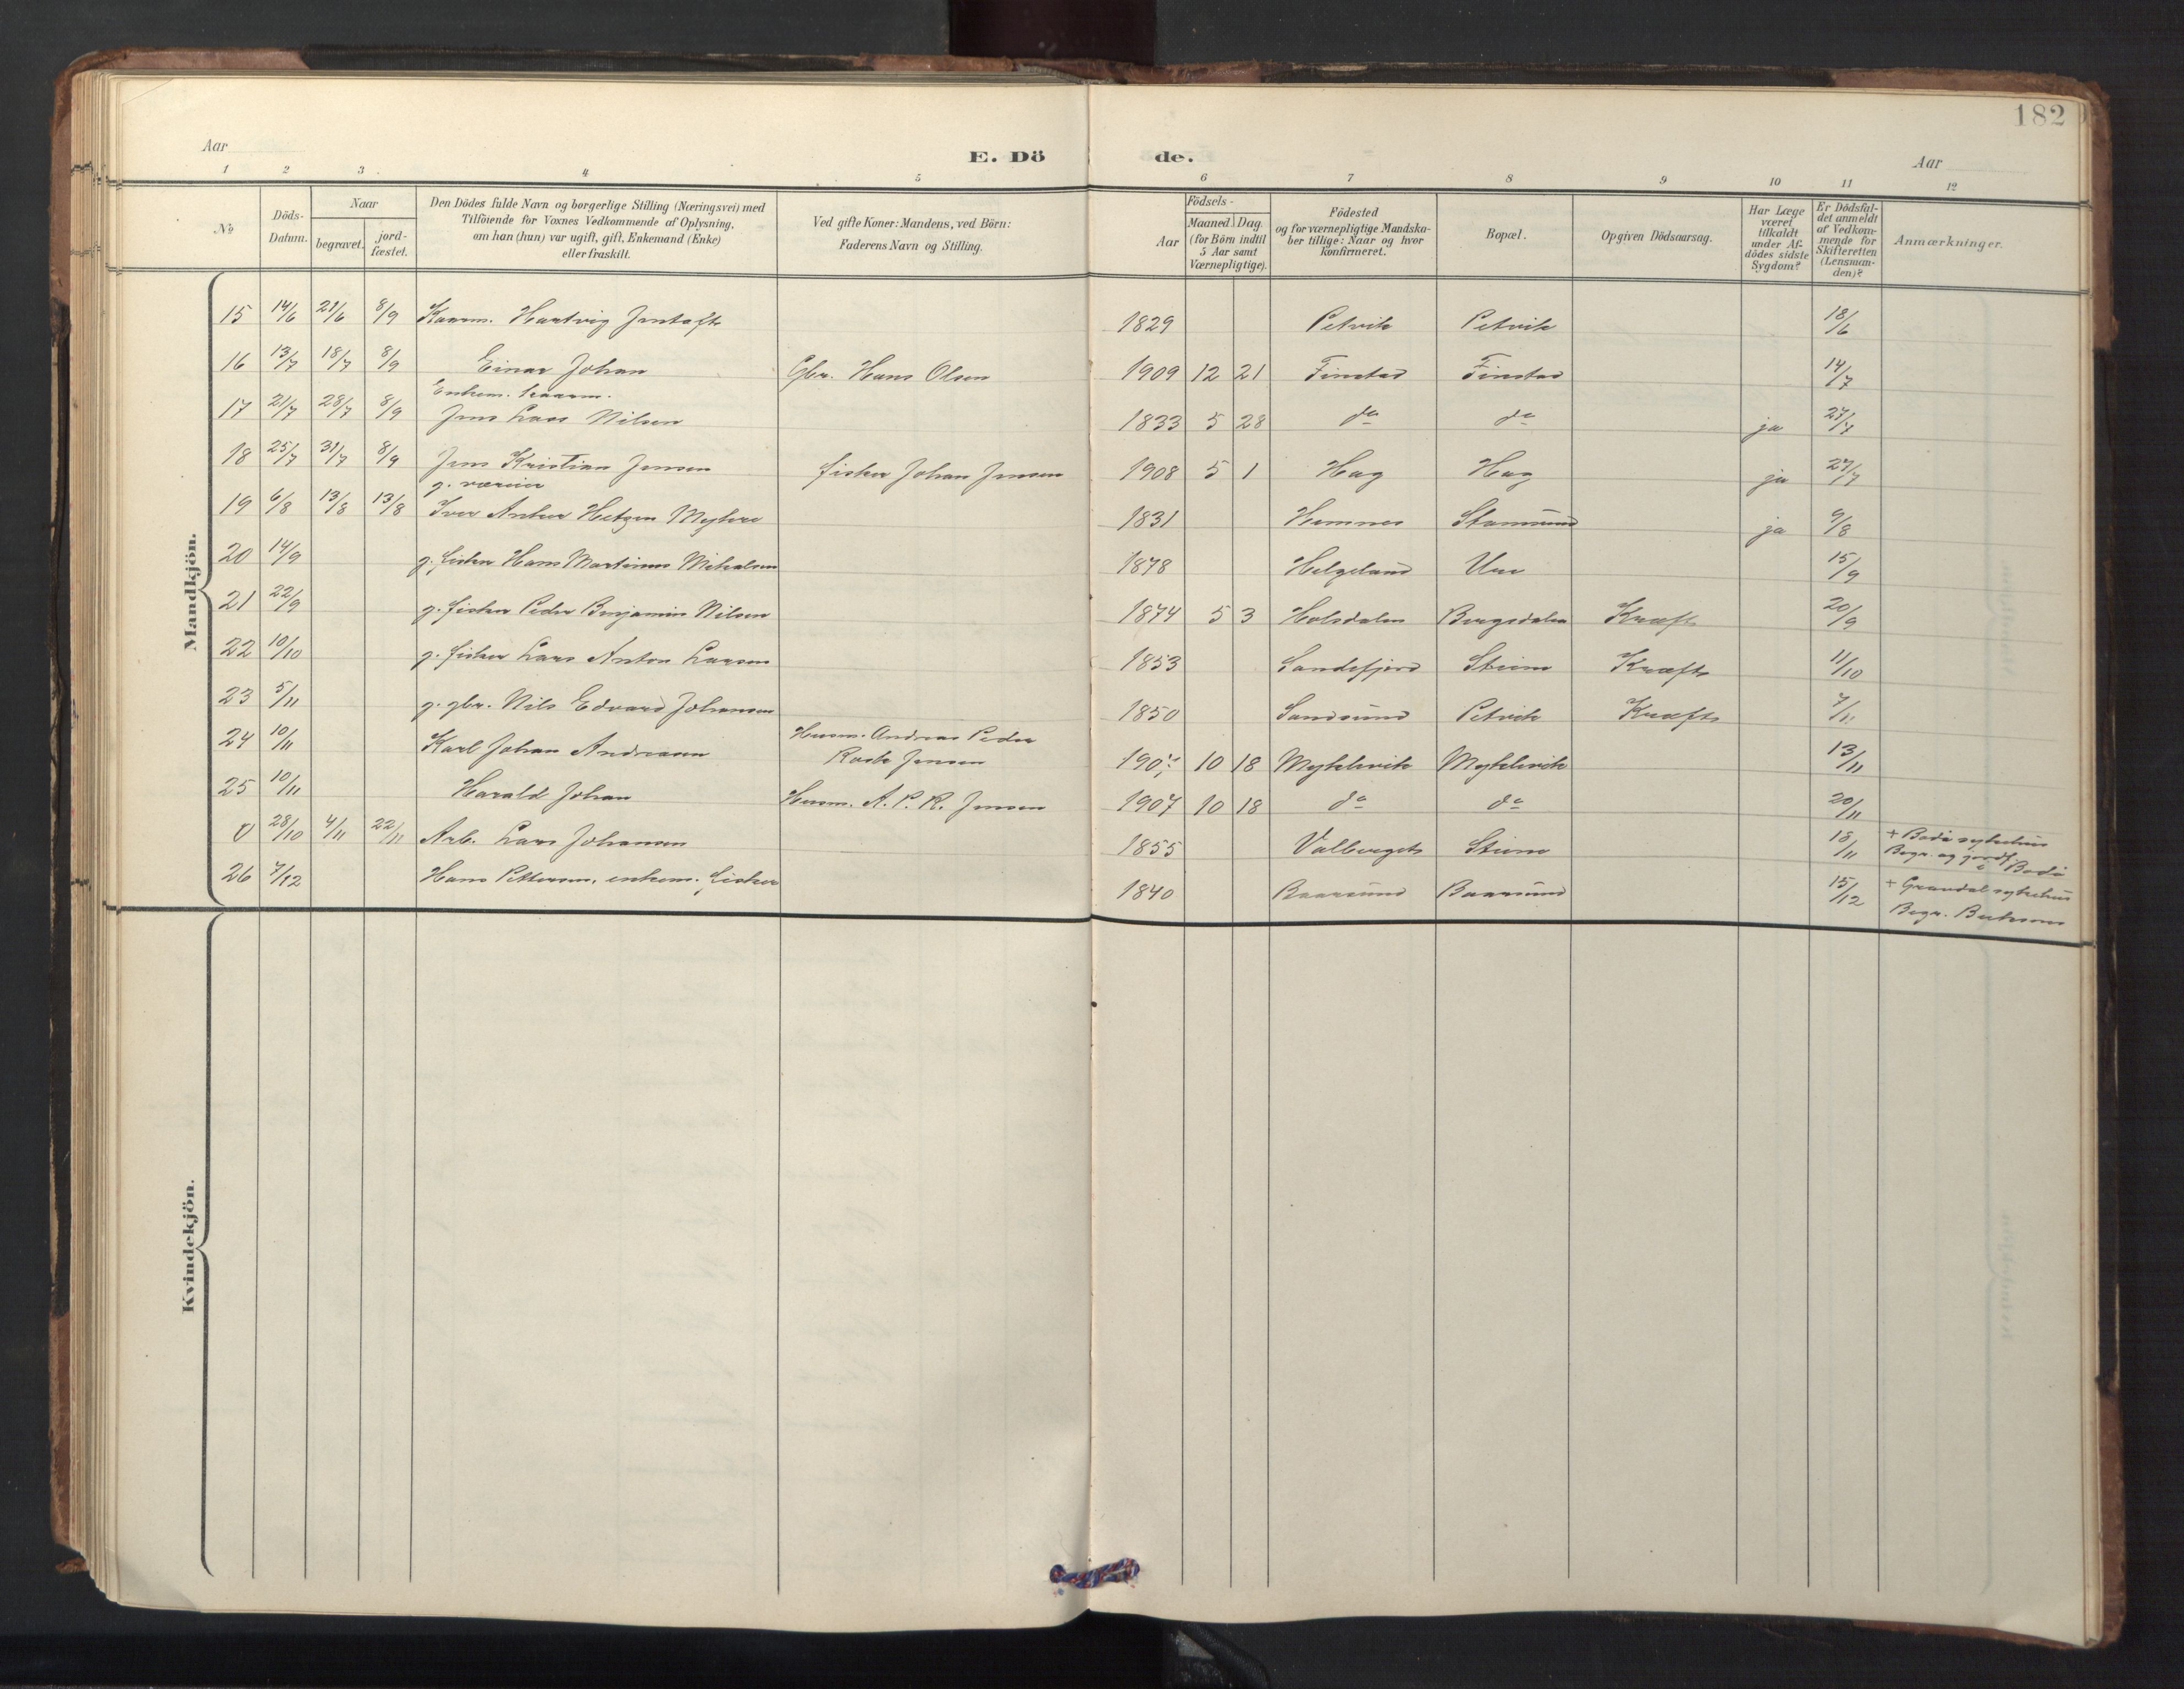 182
Aar
E. Dö
de.
Aar
1 2 3 4 5 6 7 8 9 10 11 12
No
Döds-
Datum.
Naar
begravet.
jord-
fæstet.
Den Dödes fulde Navn og borgerlige Stilling (Næringsvei) med
Tilföiende for Voxnes Vedkommende af Oplysning,
om han (hun) var ugift, gift, Enkemand (Enke)
eller fraskilt.
Ved gifte Koner: Mandens, ved Börn:
Faderens Navn og Stilling.
Födsels-
Aar
Maaned. Dag.
(for Börn indtil
5 Aar samt
Værnepligtige).
Födested
og for værnepligtige Mandska-
ber tillige: Naar og hvor
konfirmeret.
Bopæl.
Opgiven Dödsaarsag.
Har Læge
været
tilkaldt
under Af-
dödes sidste
Sygdom?
Er Dödsfal-
det anmeldt
af Vedkom-
mende for
Skifteretten
(Lensman-
den)?
Anmærkninger.
Mandkjön.
15 14/6 21/6 8/9 Kaarm. Hartvig 1829 Petvik Petvik 18/6
16 13/7 18/7 8/9 Einar Johan Gbr. Hans Olsen 1909 12 21 Finstad Finstad 14/7
Enkem. kaarm.
17 21/7 28/7 8/9 Jens Laas Nilsen 1833 5 28 do do ja 27/7
18 25/7 31/7 8/9 Jens Kristian Jensen fisker Johan Jensen 1908 5 1 Hag Hag ja 27/7
g. væreier
19 6/8 13/8 13/8 Iver Anker Myhre 1831 Hemnes Stamsund ja 9/8
20 14/9 g. fisker Hans Martinus Mikalsen 1878 Helgeland Ure 15/9
21 22/9 g. fisker Peder Benjamin Nilsen 1874 5 3 Holsdalen Bergsdalen Kræft 20/9
22 10/10 g. fisker Lars Anton Larsen 1853 Sandefjord Steine Kræft 11/10
23 5/11 g. gbr. Nils Edvard Johansen 1850 Sandsund Petvik Kræft 7/11
24 10/11 Karl Johan Andreasen Husm. Andreas Peder
Jensen 10 18 Myklevik Myklevik 13/11
25 10/11 Harald Johan Husm. A. P. R. Jensen 1907 10 18 do do 20/11
0 28/10 4/11 22/11 Arb. Lars Johansen 1855 Valberget Steine 18/11 + Bodø sykehus
Begr. og jordf. i Bodø
26 7/12 Hans Pettersen, enkem. fisker 1840 Baarsund Baarsund 15/12 + Gravdal sykehus
Begr. Buksnes
Kvindekjön.